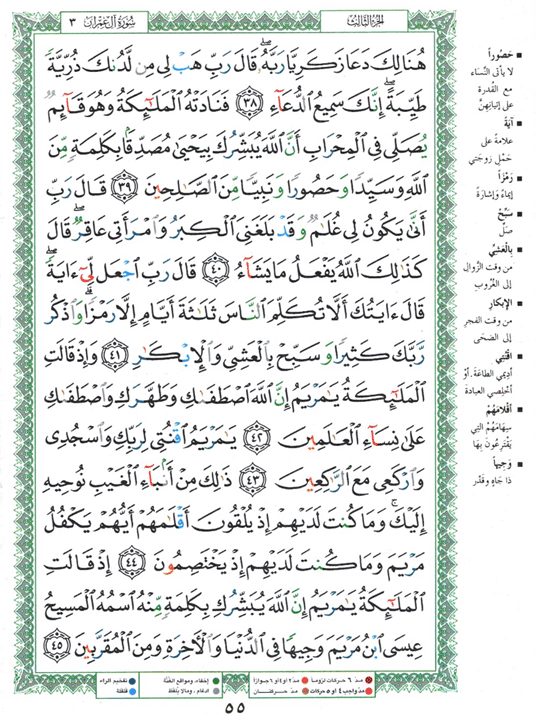 سُورَةُ آلِ عِمْرَان ٣
الجُزْءُ الثَّالِثُ
هُنَالِكَ دَعَا زَكَرِيَّا رَبَّهُۥ ۖ قَالَ رَبِّ هَبْ لِى مِن لَّدُنكَ ذُرِّيَّةً
طَيِّبَةً ۖ إِنَّكَ سَمِيعُ ٱلدُّعَآءِ ﴿٣٨﴾ فَنَادَتْهُ ٱلْمَلَٰٓئِكَةُ وَهُوَ قَآئِمٌ
يُصَلِّى فِى ٱلْمِحْرَابِ أَنَّ ٱللَّهَ يُبَشِّرُكَ بِيَحْيَىٰ مُصَدِّقًۢا بِكَلِمَةٍ مِّنَ
ٱللَّهِ وَسَيِّدًا وَحَصُورًا وَنَبِيًّا مِّنَ ٱلصَّٰلِحِينَ ﴿٣٩﴾ قَالَ رَبِّ
أَنَّىٰ يَكُونُ لِى غُلَٰمٌ وَقَدْ بَلَغَنِىَ ٱلْكِبَرُ وَٱمْرَأَتِى عَاقِرٌ ۖ قَالَ
كَذَٰلِكَ ٱللَّهُ يَفْعَلُ مَا يَشَآءُ ﴿٤٠﴾ قَالَ رَبِّ ٱجْعَل لِّىٓ ءَايَةً ۖ
قَالَ ءَايَتُكَ أَلَّا تُكَلِّمَ ٱلنَّاسَ ثَلَٰثَةَ أَيَّامٍ إِلَّا رَمْزًا ۗ وَٱذْكُر
رَّبَّكَ كَثِيرًا وَسَبِّحْ بِٱلْعَشِىِّ وَٱلْإِبْكَٰرِ ﴿٤١﴾ وَإِذْ قَالَتِ
ٱلْمَلَٰٓئِكَةُ يَٰمَرْيَمُ إِنَّ ٱللَّهَ ٱصْطَفَىٰكِ وَطَهَّرَكِ وَٱصْطَفَىٰكِ
عَلَىٰ نِسَآءِ ٱلْعَٰلَمِينَ ﴿٤٢﴾ يَٰمَرْيَمُ ٱقْنُتِى لِرَبِّكِ وَٱسْجُدِى
وَٱرْكَعِى مَعَ ٱلرَّٰكِعِينَ ﴿٤٣﴾ ذَٰلِكَ مِنْ أَنۢبَآءِ ٱلْغَيْبِ نُوحِيهِ
إِلَيْكَ ۚ وَمَا كُنتَ لَدَيْهِمْ إِذْ يُلْقُونَ أَقْلَٰمَهُمْ أَيُّهُمْ يَكْفُلُ
مَرْيَمَ وَمَا كُنتَ لَدَيْهِمْ إِذْ يَخْتَصِمُونَ ﴿٤٤﴾ إِذْ قَالَتِ
ٱلْمَلَٰٓئِكَةُ يَٰمَرْيَمُ إِنَّ ٱللَّهَ يُبَشِّرُكِ بِكَلِمَةٍ مِّنْهُ ٱسْمُهُ ٱلْمَسِيحُ
عِيسَى ٱبْنُ مَرْيَمَ وَجِيهًا فِى ٱلدُّنْيَا وَٱلْأَخِرَةِ وَمِنَ ٱلْمُقَرَّبِينَ ﴿٤٥﴾
■ حَصُوراً
لا يأتي النِّسَاء
مع القُدرة
على إتيانِهِنَّ
■ آيَةً
علامةً على
حَمْلِ زوجَتي
■ رَمْزاً
إيماءً وإشارةً
■ سَبِّحْ
صلِّ
■ بِالْعَشِيِّ
من وقتِ الزَّوالِ
إلى الغُروبِ
■ الإبْكارِ
من وقت الفجرِ
إلى الضحى
■ اقْنُتِي
أديمي الطاعةَ. أوْ
أخْلِصي العبادةَ
■ أَقْلامَهُمْ
سِهامَهُمُ التي
يَقْتَرِعُونَ بِهَا
■ وَجِيهاً
ذا جَاهٍ وقَدْر
مدّ ٦ حركات لزوماً ● مدّ ٢ او ٤ او ٦ جوازاً
مدّ واجب ٤ او ٥ حركات ● مدّ حركتان
إخفاء، ومواقع الغنّة
ادغام ، وما لا يُلفظ
تفخيم الراء
قلقلة
٥٥